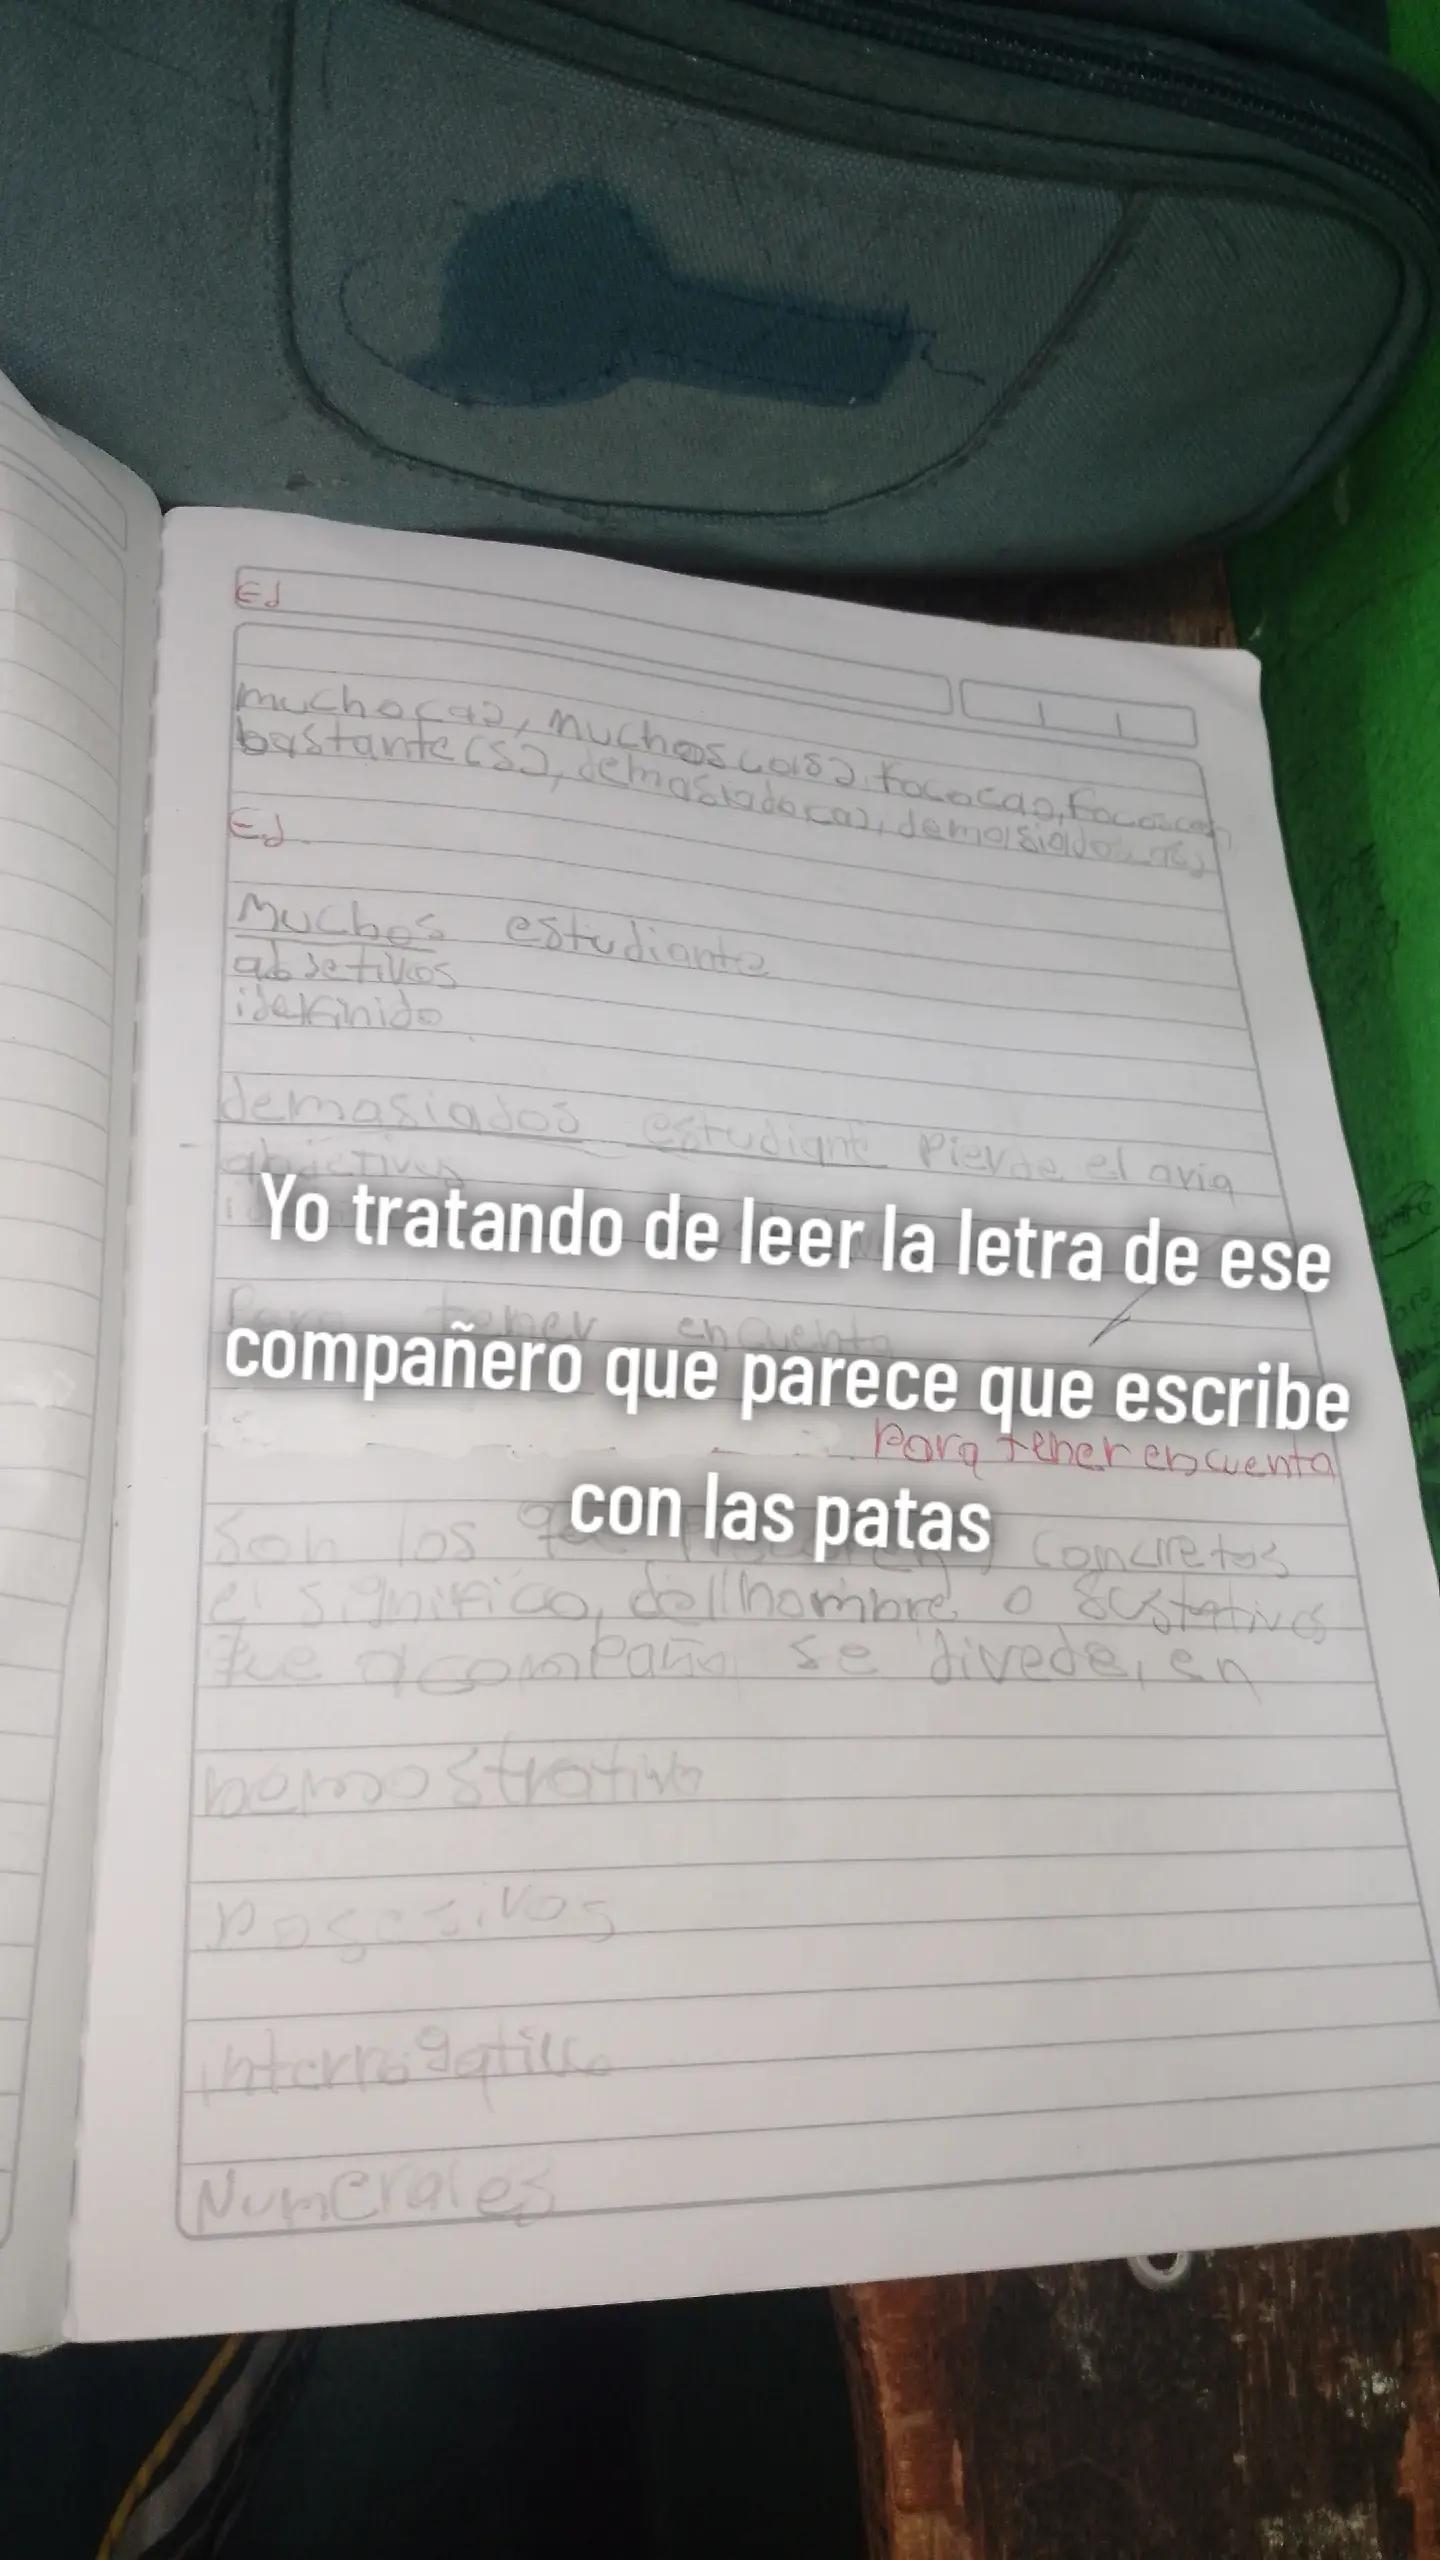 Ej
mucho(a), muchos(as). Poco(a), Pocos(as)
bastante(s), demasiado(a), demasiados(as)
Ej
Muchos estudiante
abjetivos
idefinido
demasiados estudiant Pierde el avia
abjetivos
Yo tratando de leer la letra de ese
Para tener en cuenta
compañero que parece que escribe
Para tener en cuenta
con las patas
Son los que concretos
el significo, del nombre o sustativos
que acompaña se divede, en
Demostrativo
Posesivos
interrogativo
Numerales